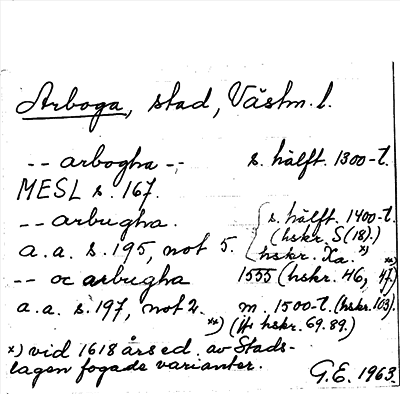 Arboga, stad, Västm. l.
-- arbogha -- s. hälft. 1300-t.
MESL s. 167.
-- arbugha. s. hälft. 1400-t.
(hskr. S(18).)
a.a. s. 195, not 5. hskr. Xa. x)
-- oc arbugha 1555 (hskr. 46, 47) xx)
a.a. s. 197, not 2. m. 1500-t. (hskr. 103).
xx) (jfr hskr. 69. 89.)
x) vid 1618 års ed. av Stads-
lagen fogade varianter.
G.E. 1963.